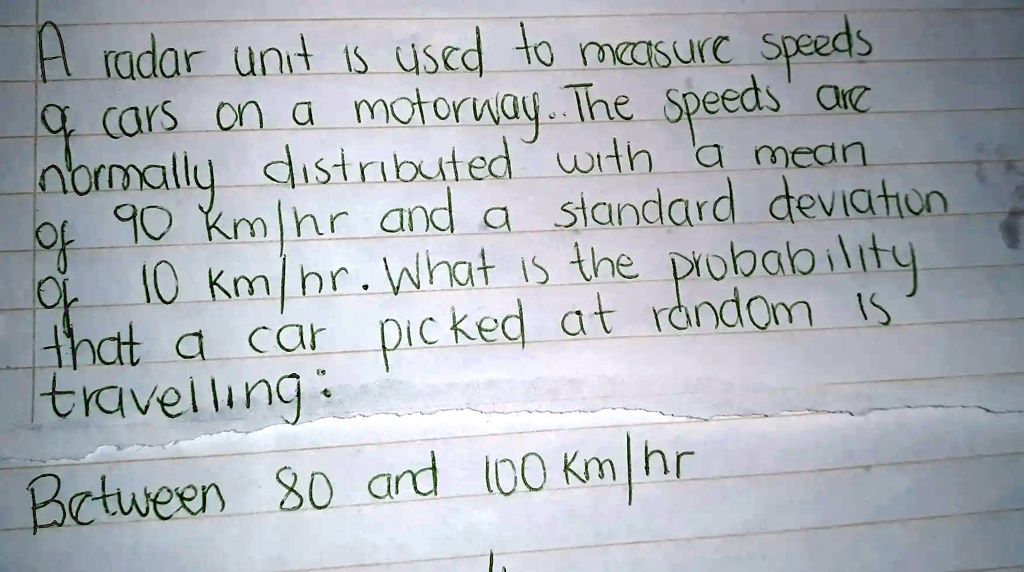 A radar unit is used to measure speeds
of cars on a motorway. The speeds are
normally distributed with a mean
of 90 km/hr and a standard deviation
of 10 km/hr. What is the probability
that a car picked at random is
travelling:
Between 80 and 100 km/hr